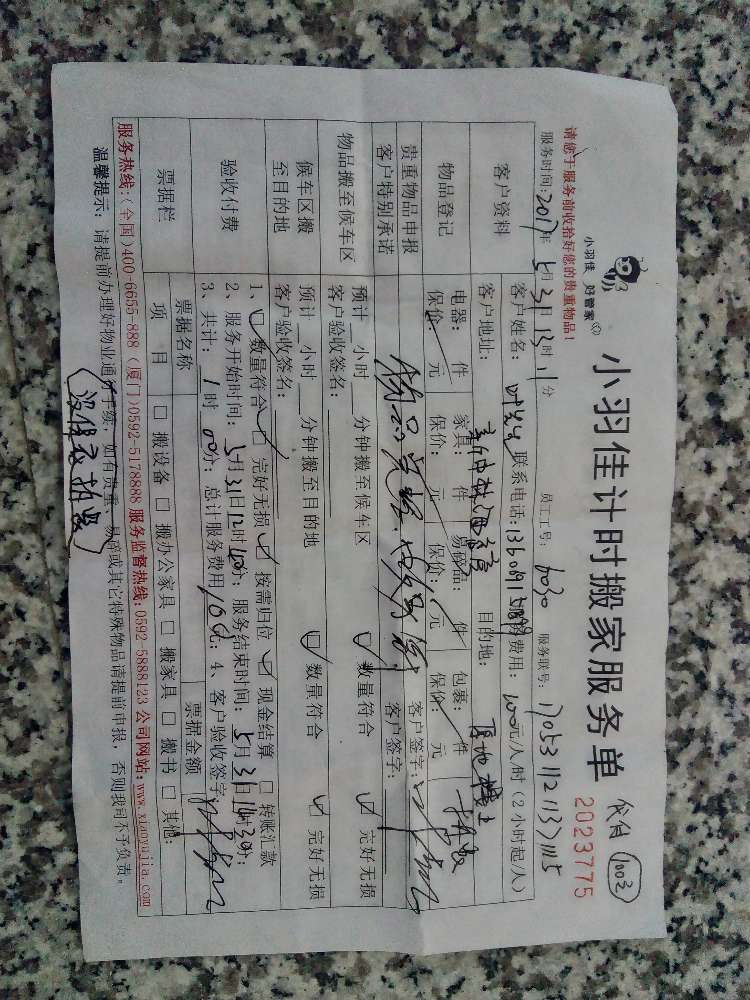 小羽佳 好管家
小羽佳计时搬家服务单
1003
2023775
请您于服务前收拾好您的贵重物品！
服务时间：2017年5月31日13时 分 员工工号：6030 服务联号：
客户资料 客户姓名： 联系电话： 服务费用：100元/人/时（2小时起/人）
客户地址： 目的地：
物品登记 电器： 件 家具： 件 易碎品： 件 包裹： 件
保价： 元 保价： 元 保价： 元 保价： 元
贵重物品申报
客户特别承诺 客户签字：
物品搬至候车区 预计 小时 分钟搬至候车区 数量符合 完好无损
客户验收签名：
候车区搬至目的地 预计 小时 分钟搬至目的地 数量符合 完好无损
客户验收签名：
验收付费 1、 数量符合 完好无损 按需归位 现金结算 转账汇款
2、服务开始时间：5月31日12时 分；服务结束时间：5月31日 时30分；
3、共计：1时00分；总计服务费用100元；4、客户验收签字
票据栏 票据名称 票据金额
项 目 搬设备 搬办公家具 搬家具 搬书 其他：
服务热线：（全国）400-6655-888（厦门）0592-5178888 服务监督热线：0592-5888123 公司网站：www.xiaoyujia.com
温馨提示：请提前办理好物业通行手续，如有贵重、易碎或其它特殊物品请提前申报，否则我司不予负责。